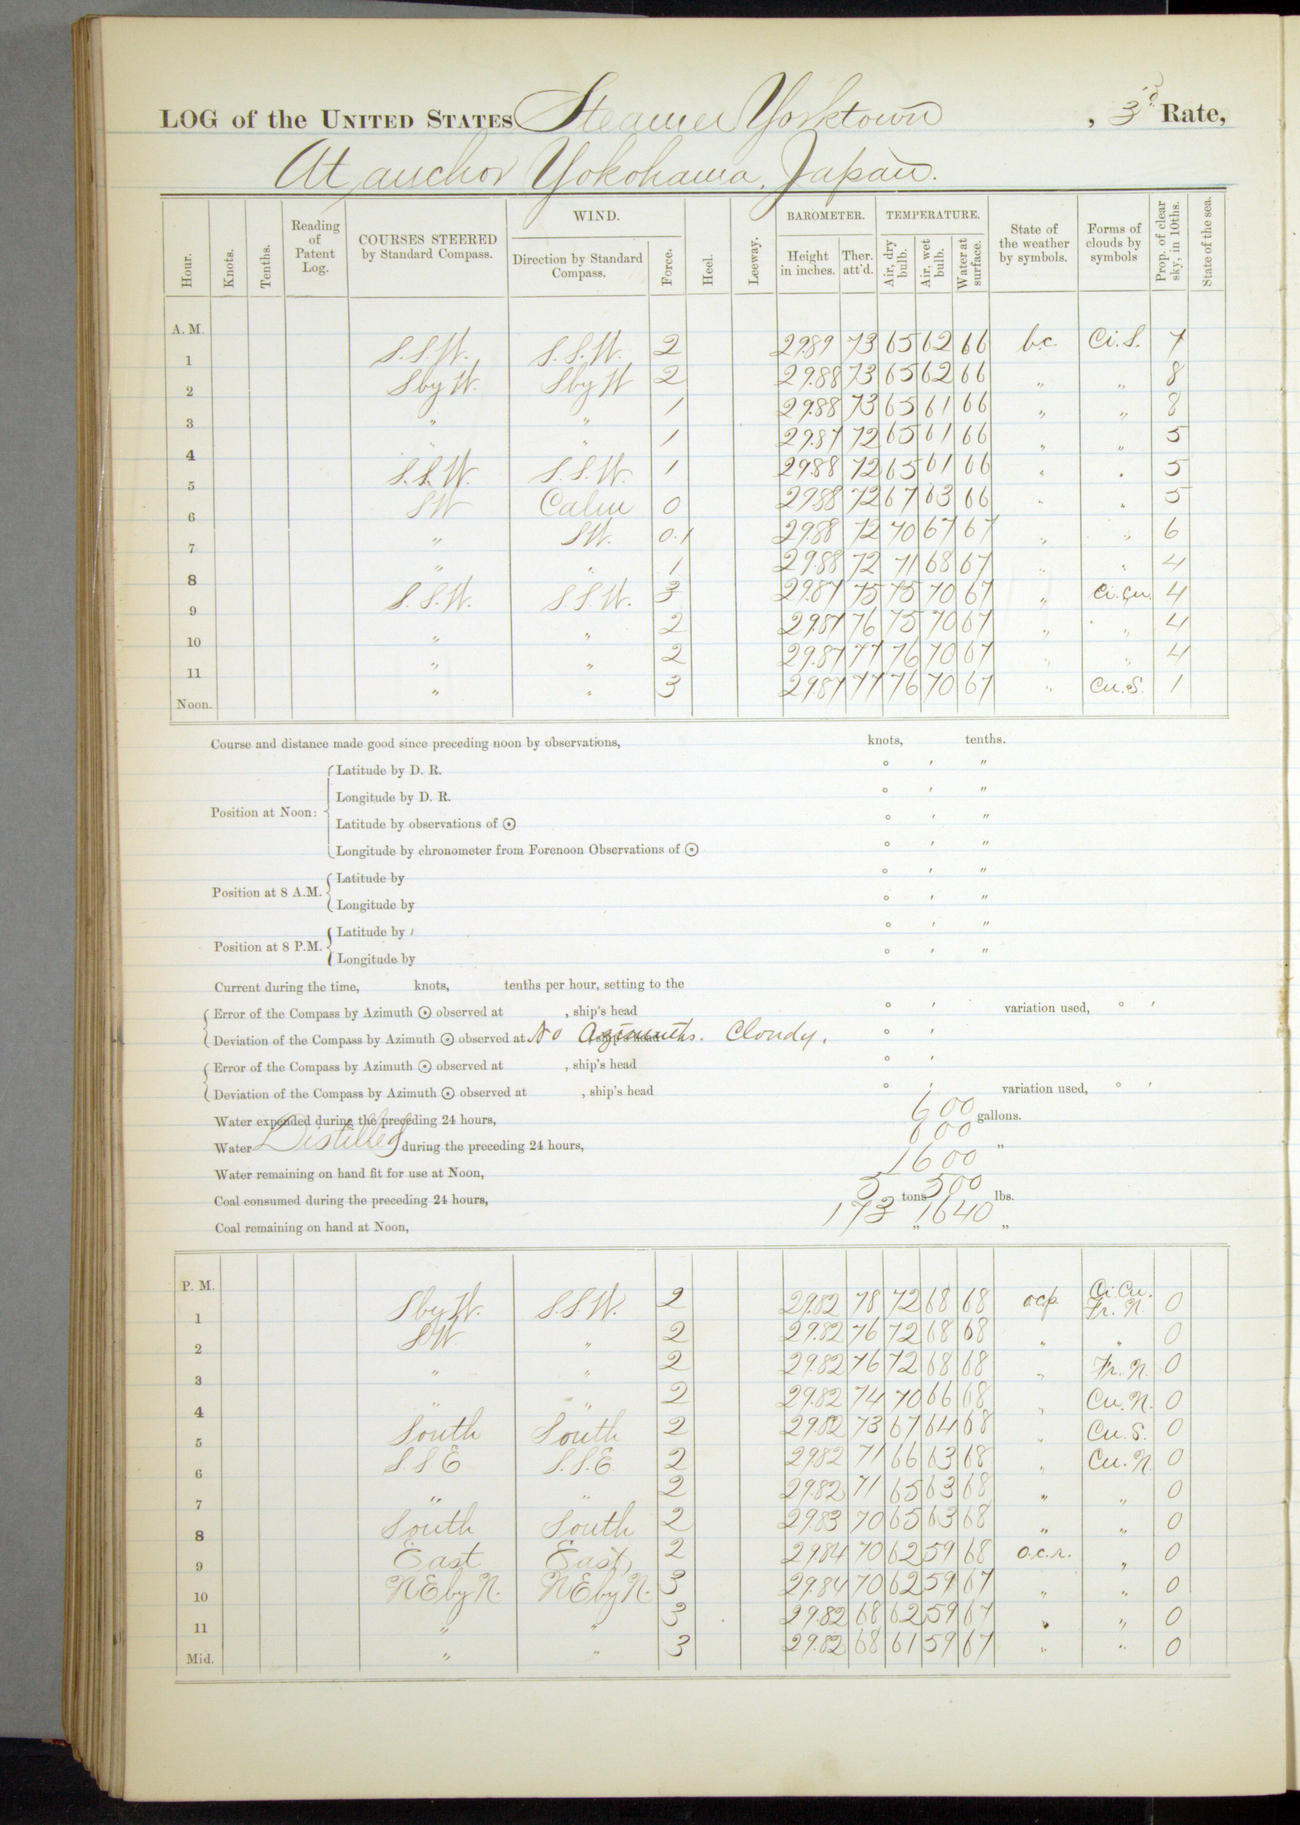 LOG of the UNITED STATES Steamer Yorktown, 3d Rate,
At anchor Yokohama, Japan.
Hour. Knots. Tenths. Reading of Patent Log. COURSES STEERED by Standard Compass. WIND. Direction by Standard Compass. Force. Heel. Leeway. BAROMETER. Height in inches. Ther. att'd. TEMPERATURE. Air, dry bulb. Air, wet bulb. Water at surface. State of the weather by symbols. Forms of clouds by symbols Prop. of clear sky, in 10ths. State of the sea.
A. M.
1 S.S.W. S.S.W. 2 29.89 73 65 62 66 b.c. Ci.S. 7
2 S by W. S by W 2 29.88 73 65 62 66 " " 8
3 " " 1 29.88 73 65 61 66 " " 8
4 " " 1 29.87 72 65 61 66 " " 5
5 S.S.W. S.S.W. 1 29.88 72 65 61 66 " " 5
6 SW Calm 0 29.88 72 67 63 66 " " 5
7 " SW. 0.1 29.88 72 70 67 67 " " 6
8 " " 1 29.88 72 71 68 67 " " 4
9 S.S.W. S.S.W. 3 29.87 75 75 70 67 " Ci.Cu. 4
10 " " 2 29.87 76 75 70 67 " " 4
11 " " 2 29.87 77 76 70 67 " " 4
Noon. " " 3 29.87 77 76 70 67 " Cu.S. 1
Course and distance made good since preceding noon by observations, knots, tenths.
Position at Noon: Latitude by D. R. ° ′ ″
Longitude by D. R. ° ′ ″
Latitude by observations of ☉ ° ′ ″
Longitude by chronometer from Forenoon Observations of ☉ ° ′ ″
Position at 8 A.M. Latitude by ° ′ ″
Longitude by ° ′ ″
Position at 8 P.M. Latitude by ° ′ ″
Longitude by ° ′ ″
Current during the time, knots, tenths per hour, setting to the
Error of the Compass by Azimuth ☉ observed at , ship's head ° ′ variation used, ° ′
Deviation of the Compass by Azimuth ☉ observed at No Azimuths. Cloudy. , ship's head ° ′
Error of the Compass by Azimuth ☉ observed at , ship's head ° ′
Deviation of the Compass by Azimuth ☉ observed at , ship's head ° ′ variation used, ° ′
Water expended during the preceding 24 hours, 600 gallons.
Water Distilled during the preceding 24 hours, 600 "
Water remaining on hand fit for use at Noon, 1600
Coal consumed during the preceding 24 hours, 5 tons 500 lbs.
Coal remaining on hand at Noon, 173 " 1640 "
P. M.
1 S by W. S.S.W. 2 29.82 78 72 68 68 ocp. Ci.Cu. Fr.N. 0
2 SW " 2 29.82 76 72 68 68 " " 0
3 " " 2 29.82 76 72 68 68 " Fr.N. 0
4 " " 2 29.82 74 70 66 68 " Cu.N. 0
5 South South 2 29.82 73 67 64 68 " Cu.S. 0
6 S.S E S.S.E. 2 29.82 71 66 63 68 " Cu.N. 0
7 " " 2 29.82 71 65 63 68 " " 0
8 South South 2 29.83 70 65 63 68 " " 0
9 East East 2 29.84 70 62 59 68 o.c.r. " 0
10 NE by N. NE by N. 3 29.84 70 62 59 67 " " 0
11 " " 3 29.82 68 62 59 67 " " 0
Mid. " " 3 29.82 68 61 59 67 " " 0